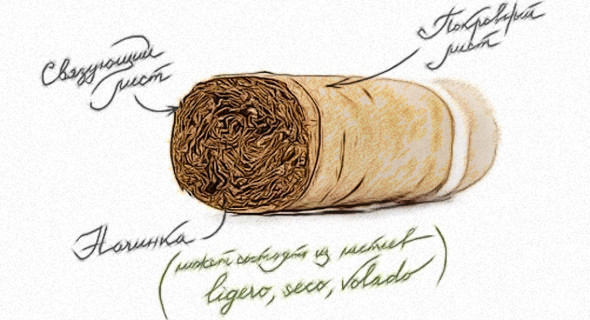 Связующий
лист
Покровный
лист
Начинка
(может состоять из листьев
ligero, seco, volado)